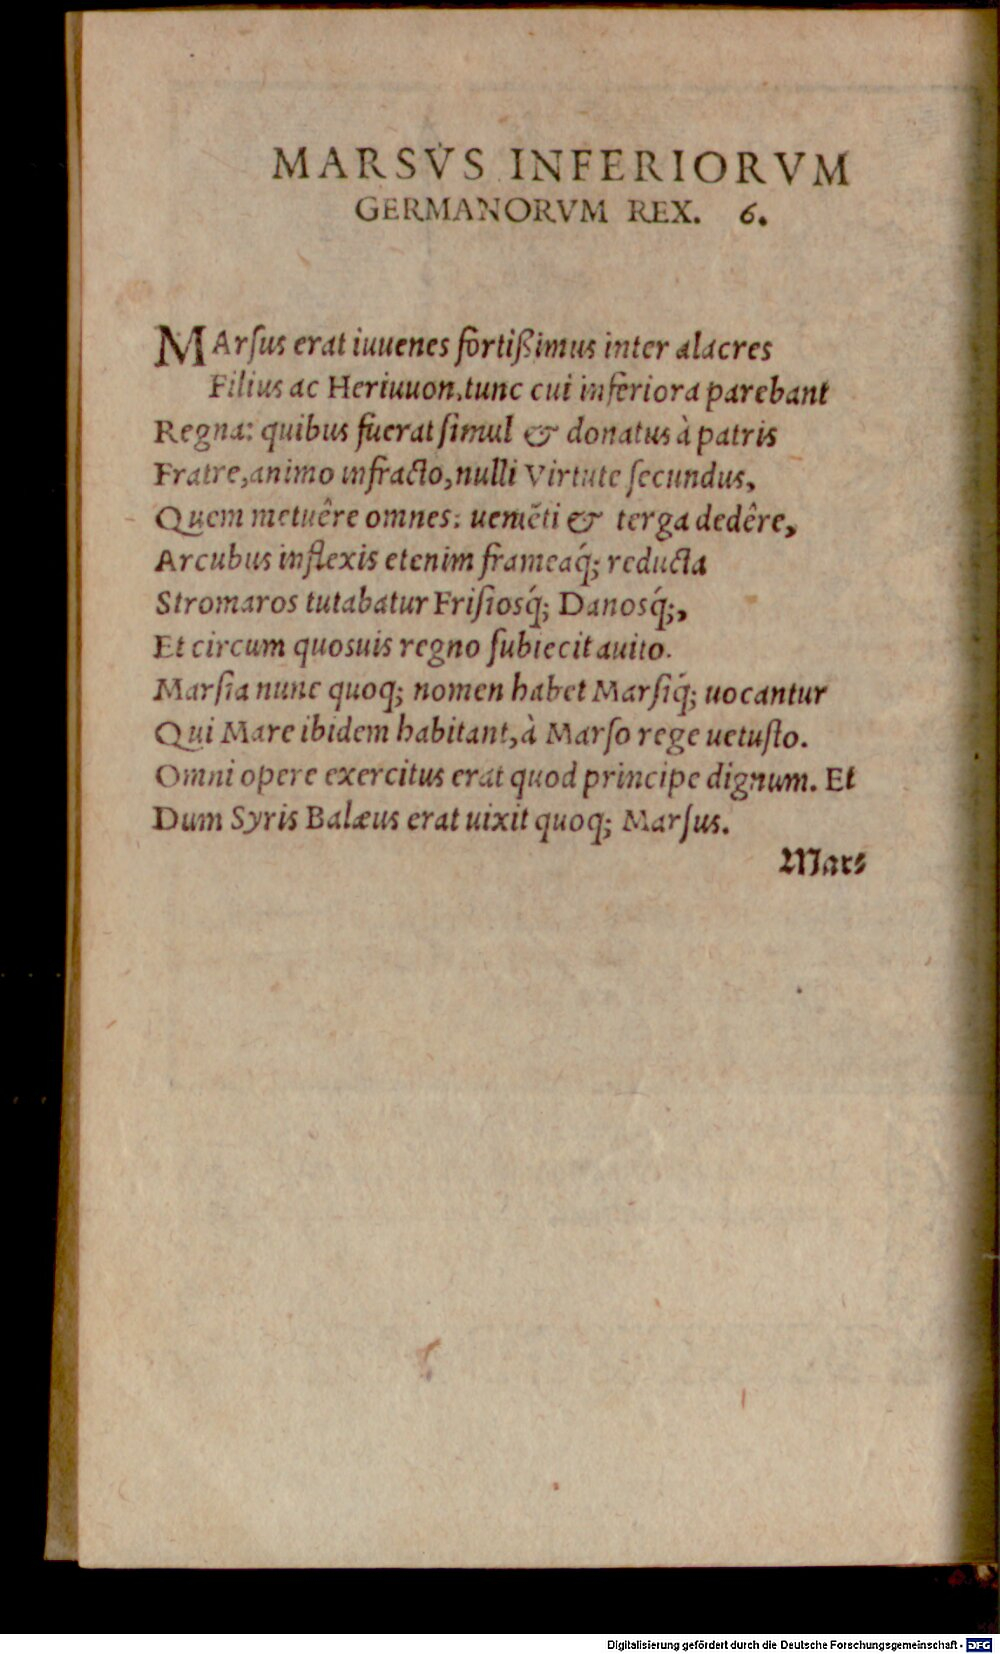 MARSVS INFERIORVM
GERMANORVM REX. 6.
MArſus erat iuuenes fortiſsimus inter alacres
Filius ac Heriuuon, tunc cui inferiora parebant
Regna: quibus fuerat ſimul & donatus à patris
Fratre, animo infracto, nulli Virtute ſecundus,
Quem metuêre omnes: uemẽti & terga dedêre,
Arcubus inflexis etenim frameaq́; reducta
Stromaros tutabatur Friſiosq́; Danosq́;,
Et circum quosuis regno ſubiecit auito.
Marſia nunc quoq; nomen habet Marſiq́; uocantur
Qui Mare ibidem habitant, à Marſo rege uetuſto.
Omni opere exercitus erat quod principe dignum. Et
Dum Syris Balæus erat uixit quoq; Marſus.
Mars
Digitalisierung gefördert durch die Deutsche Forschungsgemeinschaft - DFG